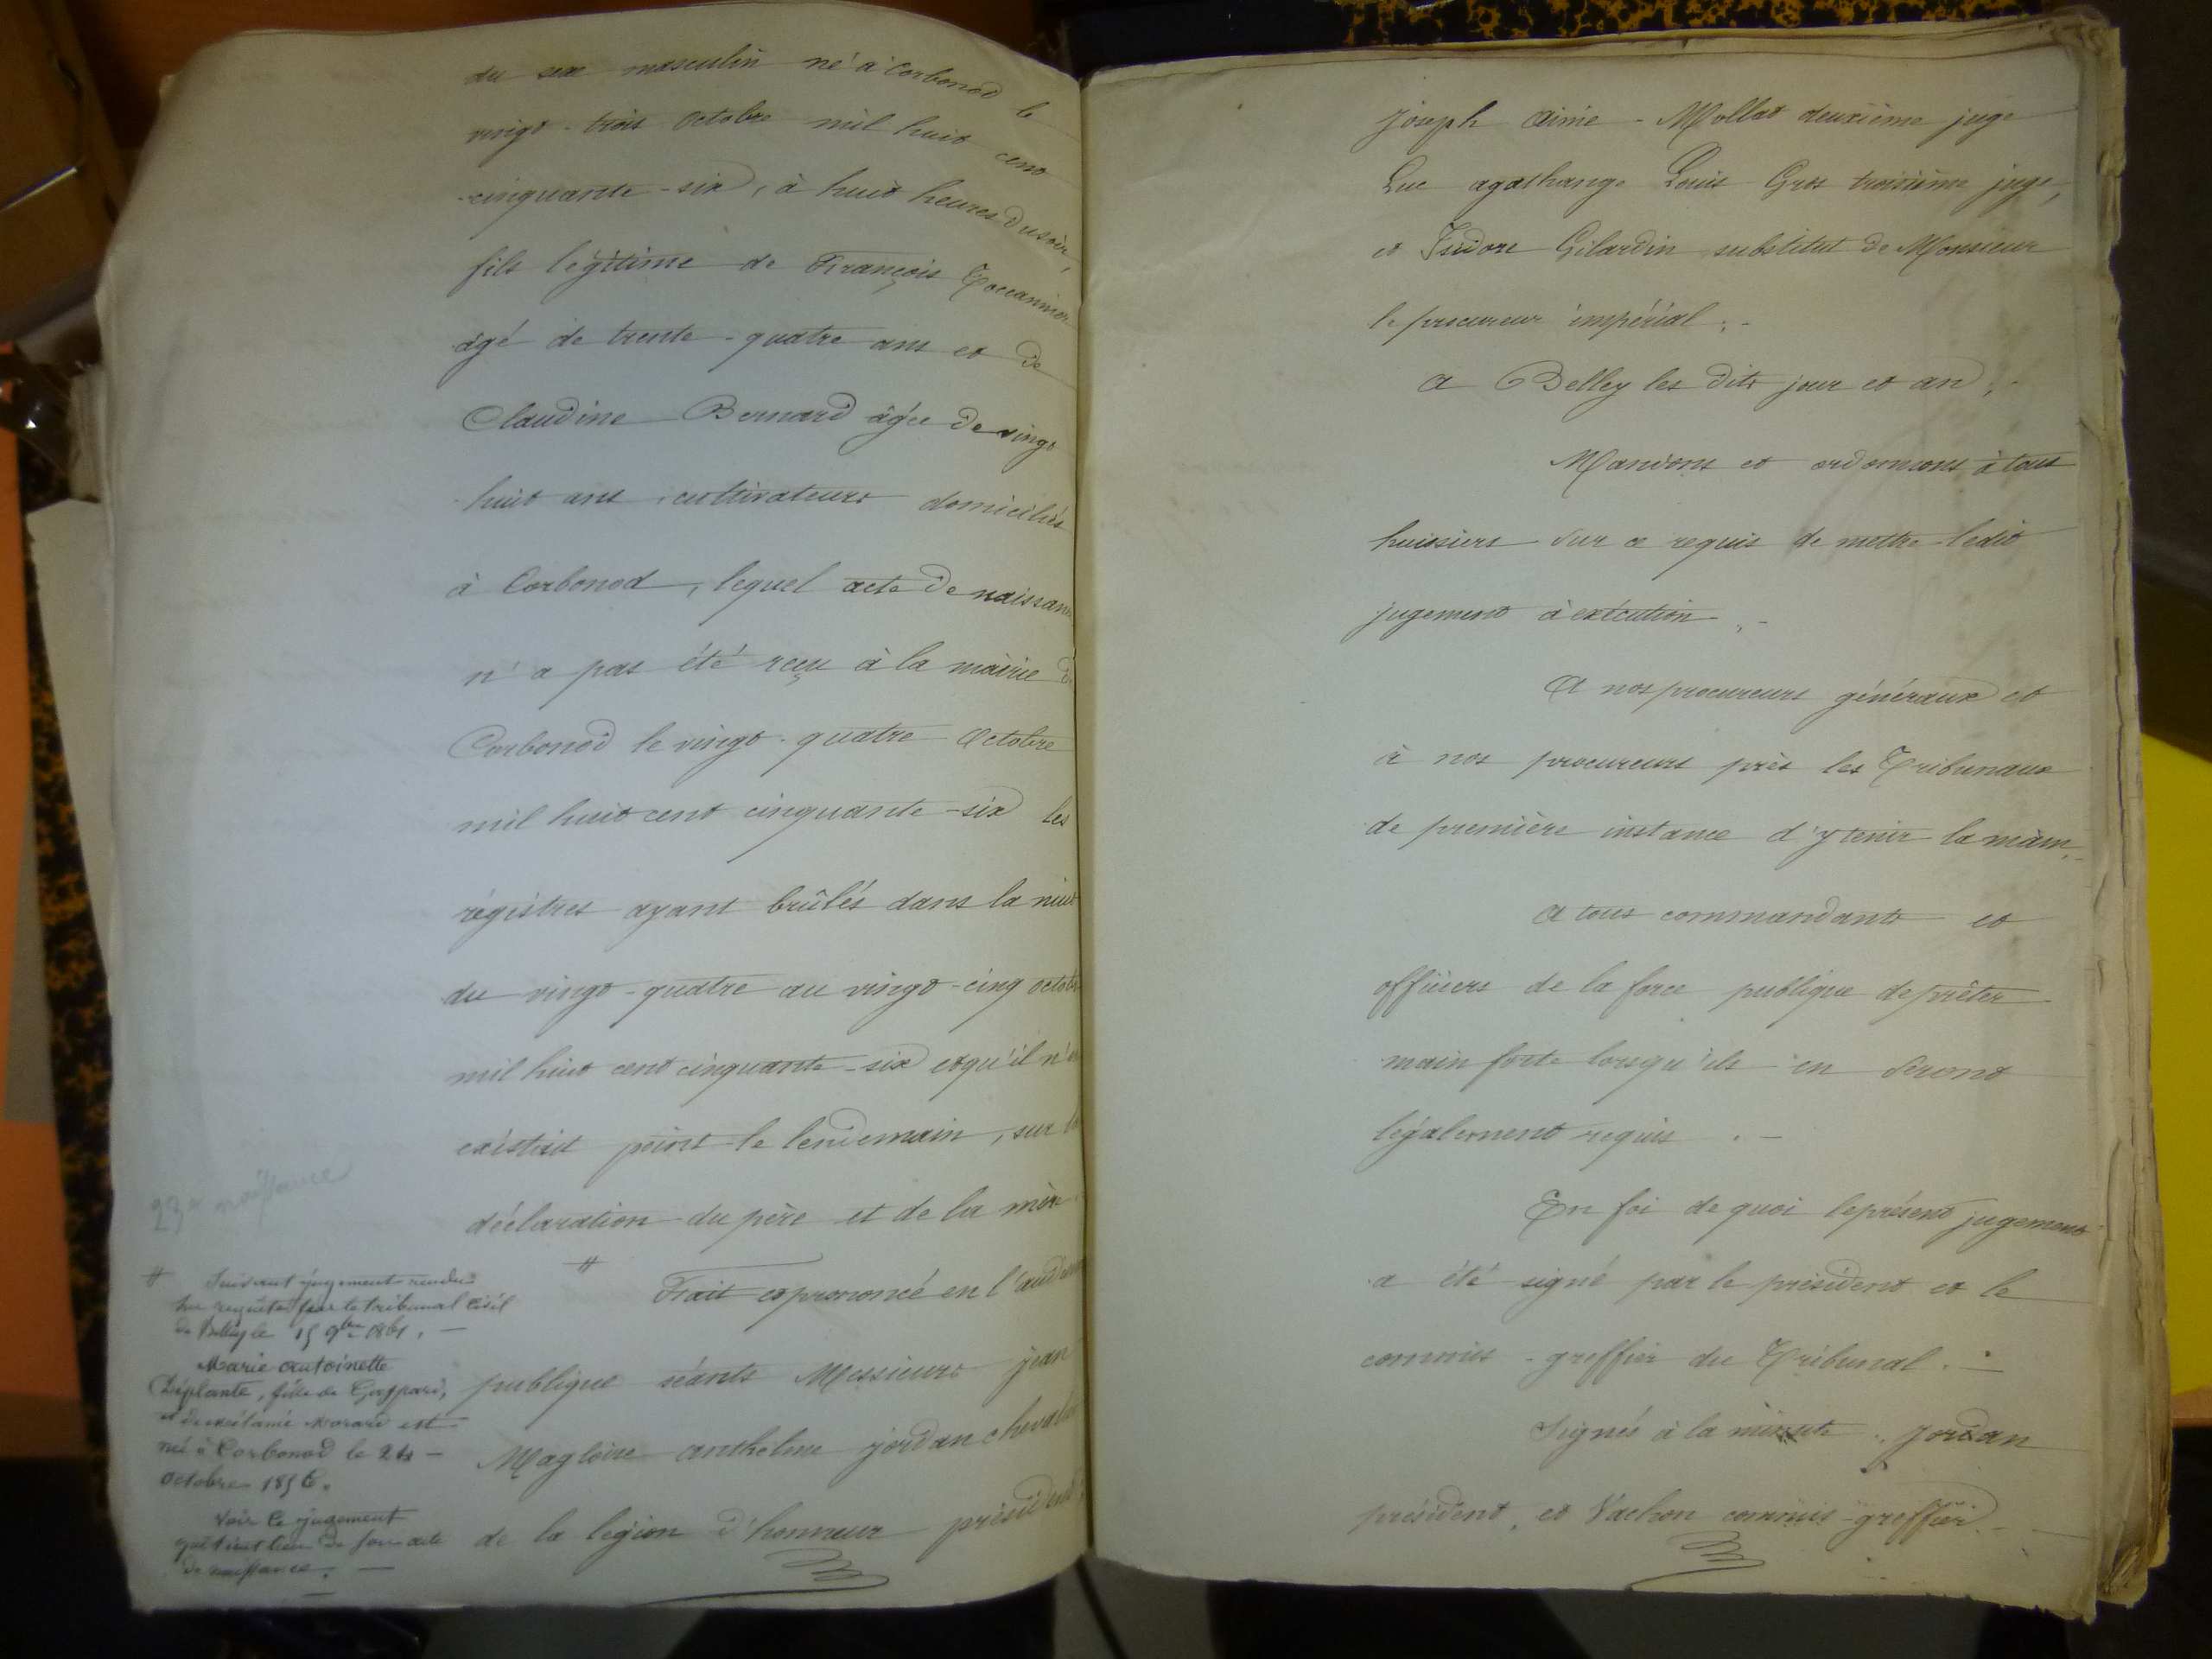 du sexe masculin né à Corbonod le
vingt-trois Octobre mil huit cent
cinquante-six, à huit heures du soir,
fils légitime de François
âgé de trente-quatre ans et de
Claudine Bernard âgée de vingt
huit ans, cultivateurs domiciliés
à Corbonod, lequel acte de naissance
n'a pas été reçu à la mairie de
Corbonod le vingt-quatre Octobre
mil huit cent cinquante-six les
régistres ayant brûlés dans la nuit
du vingt-quatre au vingt-cinq octobre
mil huit cent cinquante-six et qu'il n'en
existait point le lendemain, sur la
déclaration du père et de la mère.
# Fait et prononcé en l'audience
publique séants Messieurs jean
Magloire anthelme jordan chevalier
de la légion d'honneur président,
23e naissance
# Suivant jugement rendu
sur requête par le tribunal Civil
de Belley le 15 9bre 1861. —
Marie antoinette
fille de Gaspard,
et de Morard est
né à Corbonod le 24 —
octobre 1856.
Voir le jugement
qui tient lieu de son acte
de naissance. —
joseph aimé Mollat deuxième juge
Luc agathange Louis Gros troisième juge,
et Isidore Gilardin substitut de Monsieur
le procureur impérial ;-
A Belley les dits jour et an ;-
Mandons et ordonnons à tous
huissiers sur ce requis de mettre ledit
jugement à exécution ;-
A nos procureurs généraux et
à nos procureurs près les Tribunaux
de première instance d'y tenir la main,-
A tous commandants et
officiers de la force publique de prêter
main forte lorsqu'ils en seront
légalement requis .-
En foi de quoi le présent jugement
a été signé par le président et le
commis-greffier du Tribunal .-
Signés à la minute : jordan
président, et Vachon commis-greffier.-